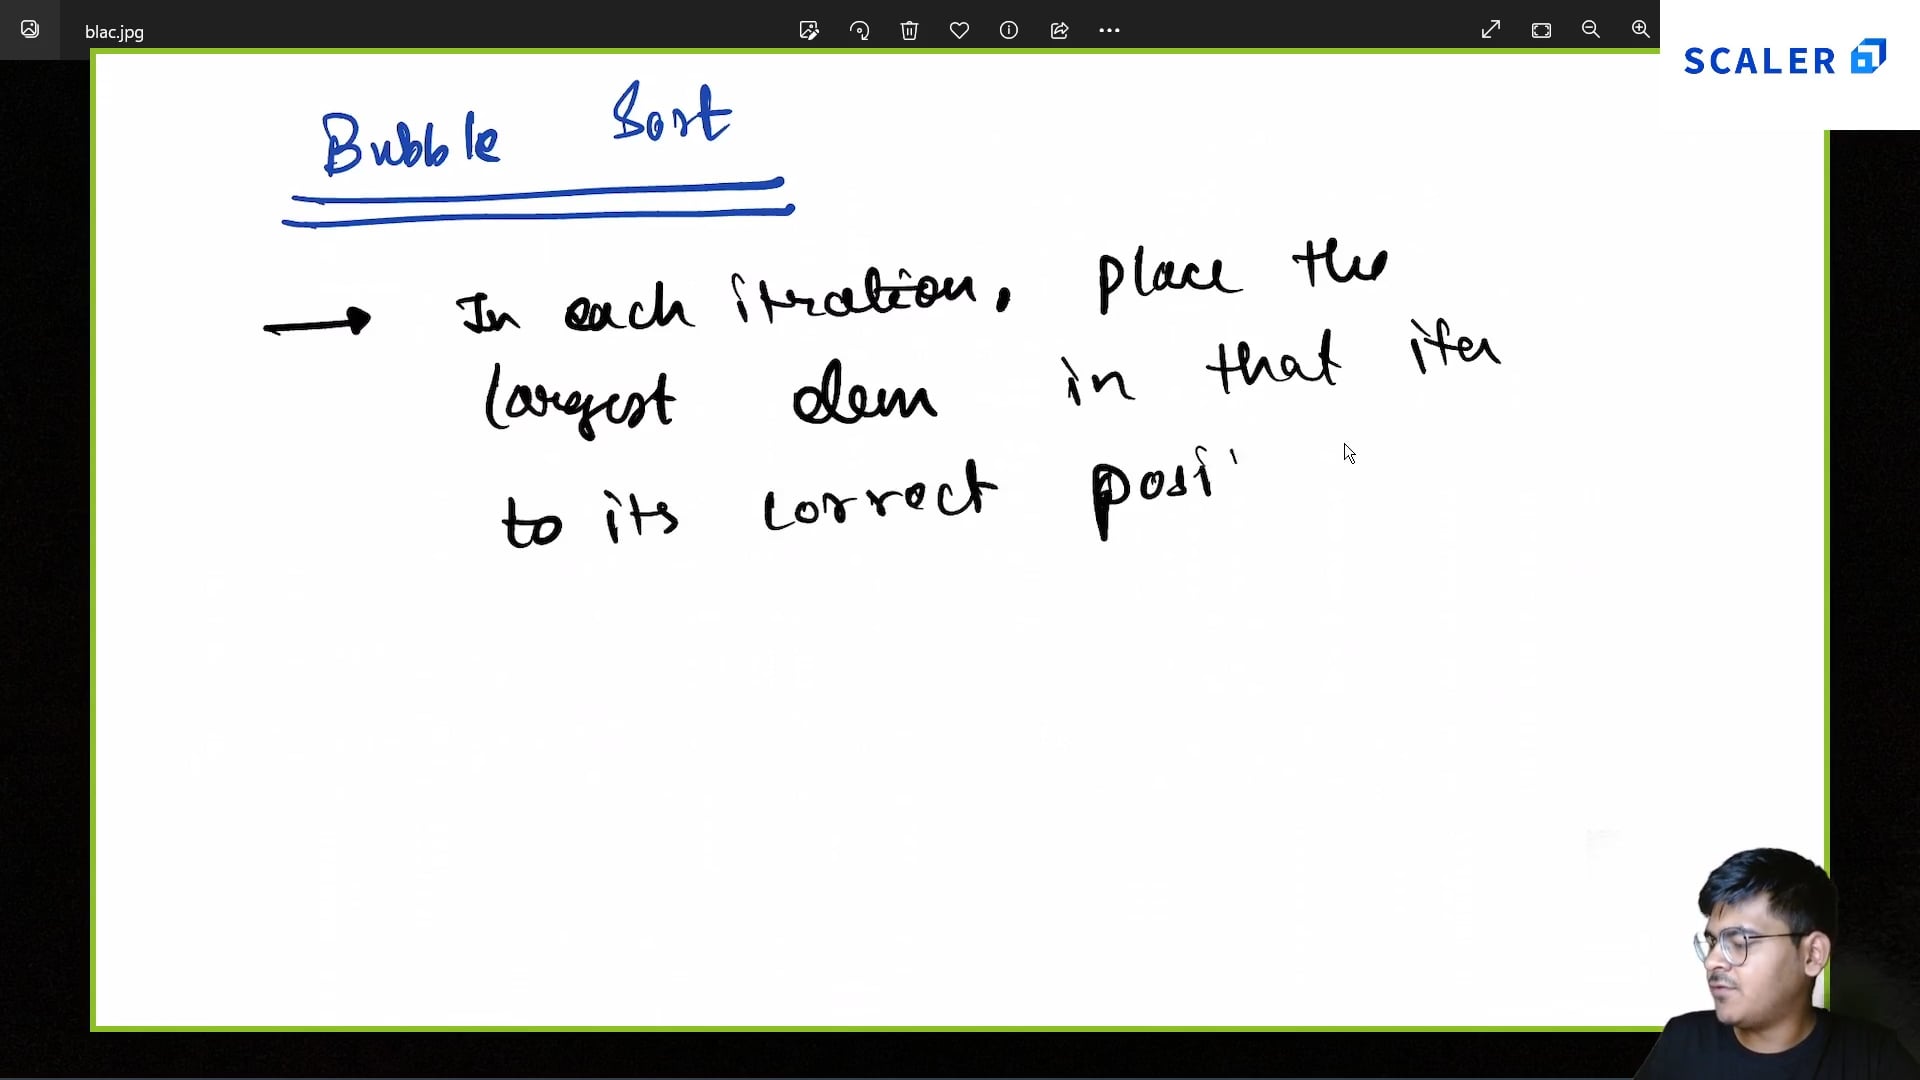 blac.jpg
SCALER
Bubble Sort
→ In each itration, place the
largest elem in that iter
to its correct posi